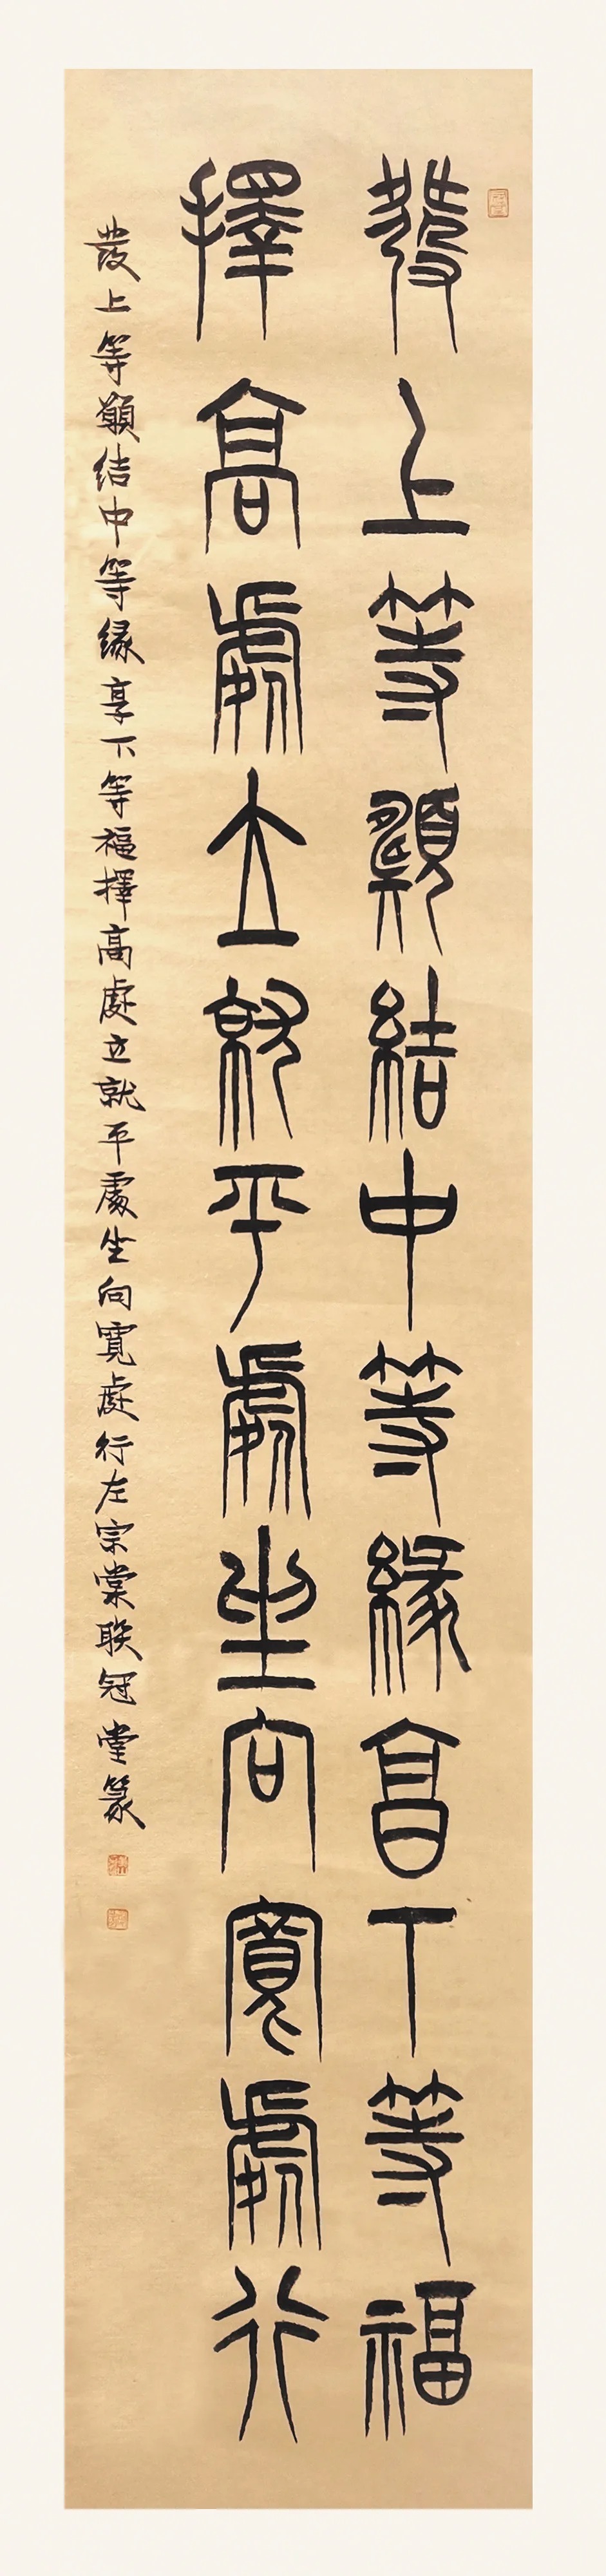 發上等願結中等緣享下等福
擇高處立就平處坐向寬處行
發上等願結中等緣享下等福擇高處立就平處坐向寬處行左宗棠联冠堂篆